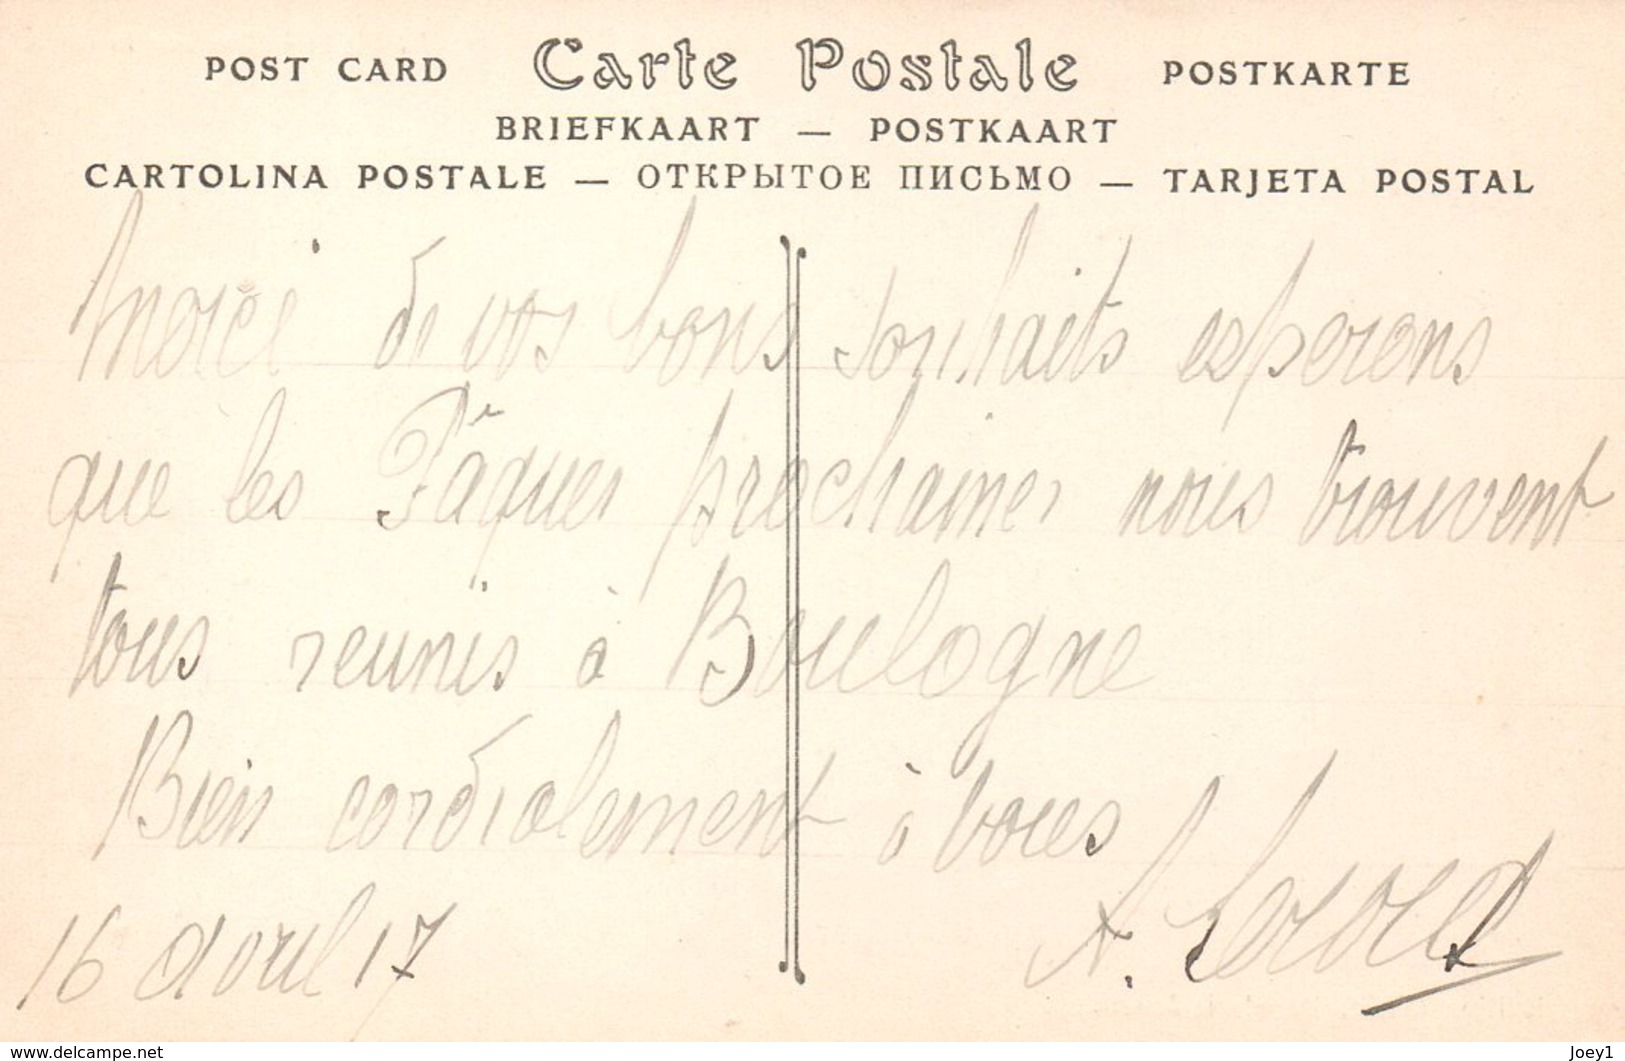 POST CARD Carte Postale POSTKARTE
BRIEFKAART — POSTKAART
CARTOLINA POSTALE — ОТКРЫТОЕ ПИСЬМО — TARJETA POSTAL
Merci de vos bons souhaits esperons
que les Pâques prochaines nous trouvent
tous reunis à Boulogne
Bien cordialement à vous
A.
16 avril 17
www.delcampe.net
Joey1